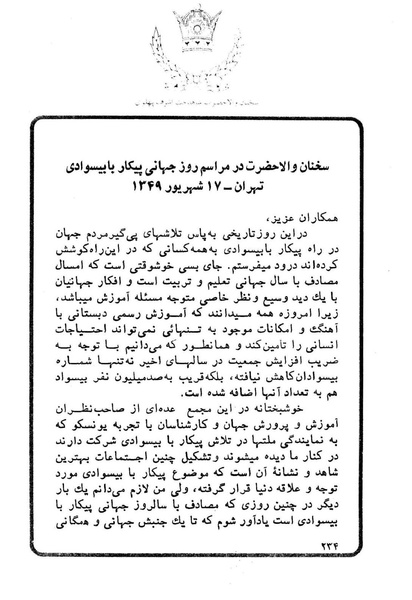 سخنان والاحضرت شاهدخت اشرف پهلوی
سخنان والاحضرت در مراسم روز جهانی پیکار بابیسوادی
تهران ـ ۱۷ شهریور ۱۳۴۹
همکاران عزیز،
دراین روزتاریخی به‌پاس تلاشهای پی‌گیرمردم جهان
در راه پیکار بابیسوادی به‌همه‌کسانی که در این‌راه‌کوشش
کرده‌اند درود میفرستم. جای بسی خوشوقتی است که امسال
مصادف با سال جهانی تعلیم و تربیت است و افکار جهانیان
با یك دید وسیع ونظر خاصی متوجه مسئله آموزش میباشد،
زیرا امروزه همه میدانند که آموزش رسمی دبستانی با
آهنگ و امکانات موجود به تنهائی نمی‌تواند احتیاجات
انسانی را تامین‌کند و همانطور که می‌دانیم با توجه به
ضریب افزایش جمعیت در سالهای اخیر نه‌تنها شماره
بیسوادان‌کاهش نیافته، بلکه‌قریب به‌صدمیلیون نفر بیسواد
هم به تعداد آنها اضافه شده است.
خوشبختانه در این مجمع عده‌ای از صاحب‌نظران
آموزش و پرورش جهان و کارشناسان با تجربه یونسکو که
به نمایندگی ملتها در تلاش پیکار با بیسوادی شرکت دارند
در کنار ما دیده میشوند وتشکیل چنین اجتماعات بهترین
شاهد و نشانهٔ آن است که موضوع پیکار با بیسوادی مورد
توجه و علاقه دنیا قرار گرفته، ولی من لازم می‌دانم یك بار
دیگر در چنین روزی که مصادف با سالروز جهانی پیکار با
بیسوادی است یادآور شوم که تا یك جنبش جهانی و همگانی
۲۳۴